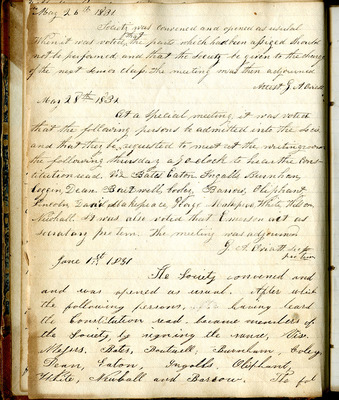 May 26th 1831
Society was convened and opened as usual
When it was voted, that the parts which had been assigned should
not be performed, and that the Society be given to the charge
of the next senior class. the meeting was then adjourned
Attest J. A.
May 28th 1831
At a special meeting it was voted
that the following persons be admitted into the Soci
and that they be requested to meet at the
the following thursday a Jo clock to hear the Cons-
titution read. Viz Bates Eaton Ingalls Burnham
Dean Boutwell Cooley Barrows, Oliphant
Lincoln Davis Makepeace White
Newhall. It was also voted that Emerson act as
secretary pro tem. the meeting was adjourned
J. A. Secy
pro tem
June 1st 1831
The Society convened and
and was opened as usual. After which
the following persons, having heard
the Constitution read, became members of
the Society, by signing the same, Viz.
Messrs, Bates, Boutwell, Burnham, Cooley
Dean, Eaton, Ingalls, Oliphant,
White, Newhall and Barrow. The fol